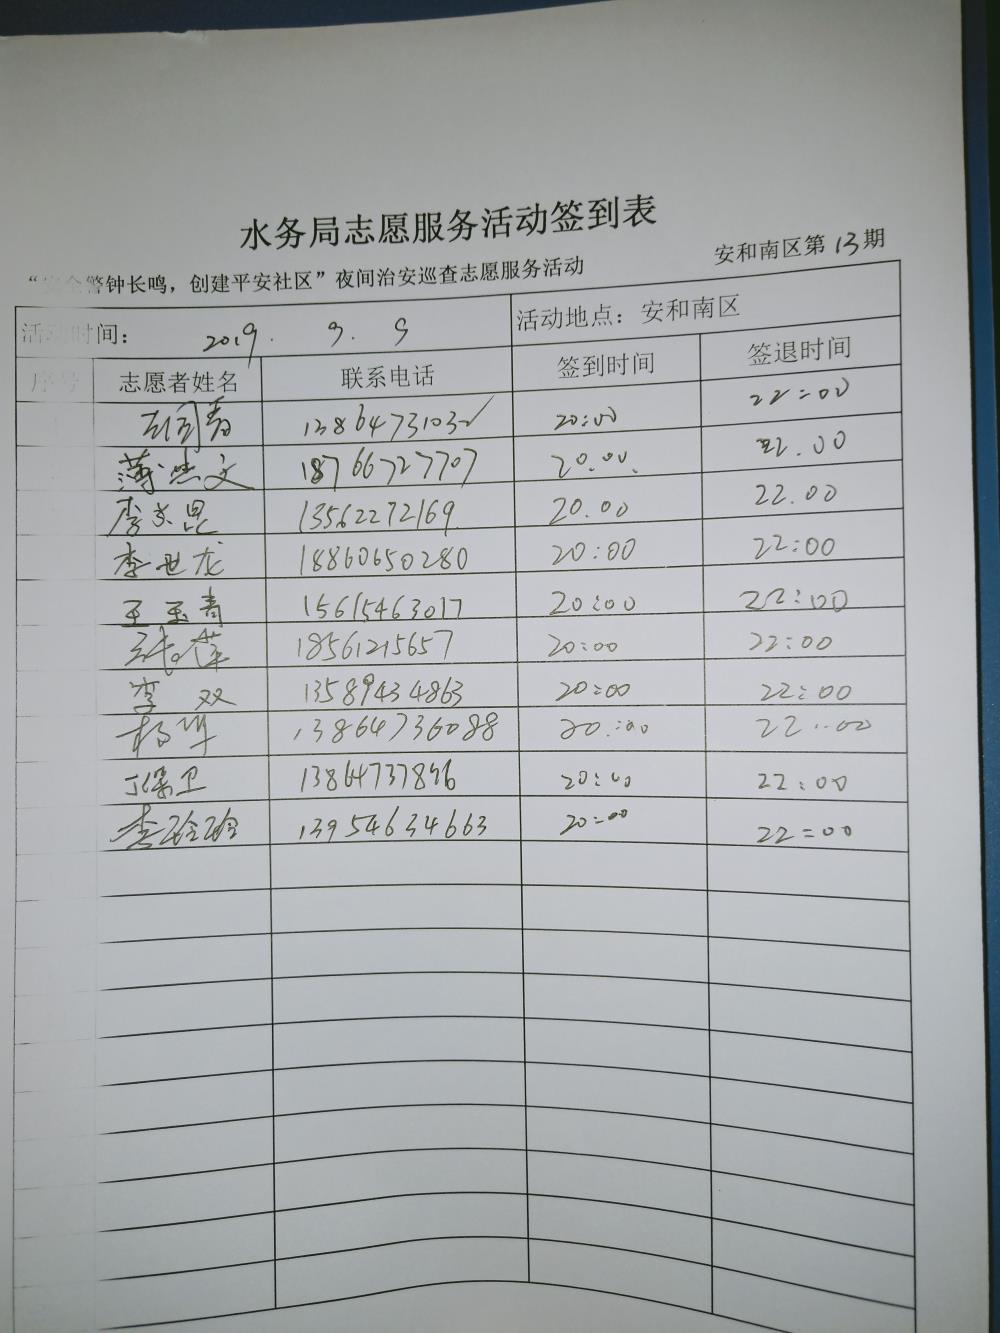 水务局志愿服务活动签到表
安和南区第13期
“安全警钟长鸣，创建平安社区”夜间治安巡查志愿服务活动
活动时间： 2019. 9. 9 活动地点：安和南区
序号 志愿者姓名 联系电话 签到时间 签退时间
20:00 22:00
薄 文 18766727707 20:00. 22.00
李 昆 13562272169 20.00 22.00
李世龙 18860650280 20:00 22:00
王玉青 15615463017 20:00 22:00
张萍 18561215657 20:00 22:00
李双 13589434863 20:00 22:00
杨 13864736088 20:00 22:00
丁保卫 13864737896 20:00 22:00
李玲玲 13954634663 20:00 22:00